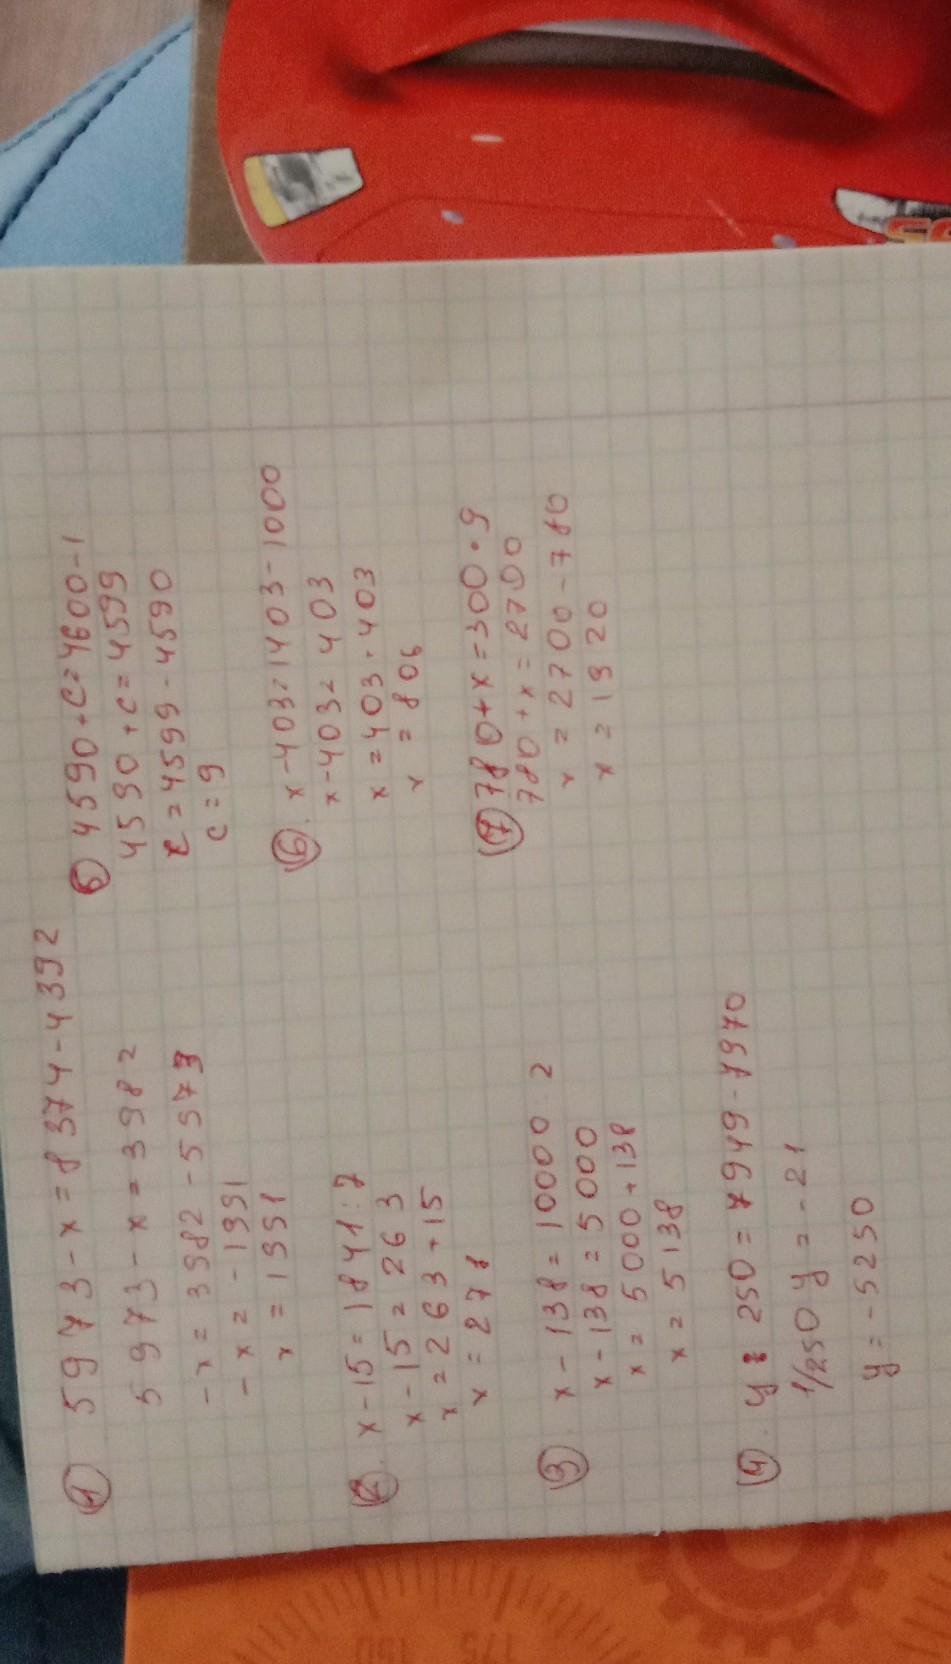 ① 5973 - x = 8374 - 4392
5973 - x = 3982
- x = 3982 - 5973
- x = - 1991
x = 1991
②. x - 15 = 1841 : 7
x - 15 = 263
x = 263 + 15
x = 278
③. x - 138 = 10000 : 2
x - 138 = 5000
x = 5000 + 138
x = 5138
④. y : 250 = 7949 - 7970
1/250 y = - 21
y = - 5250
⑤ 4590 + c = 4600 - 1
4590 + c = 4599
c = 4599 - 4590
c = 9
⑥. x - 403 = 1403 - 1000
x - 403 = 403
x = 403 + 403
x = 806
⑦ 780 + x = 300 · 9
780 + x = 2700
x = 2700 - 780
x = 1920
175
150